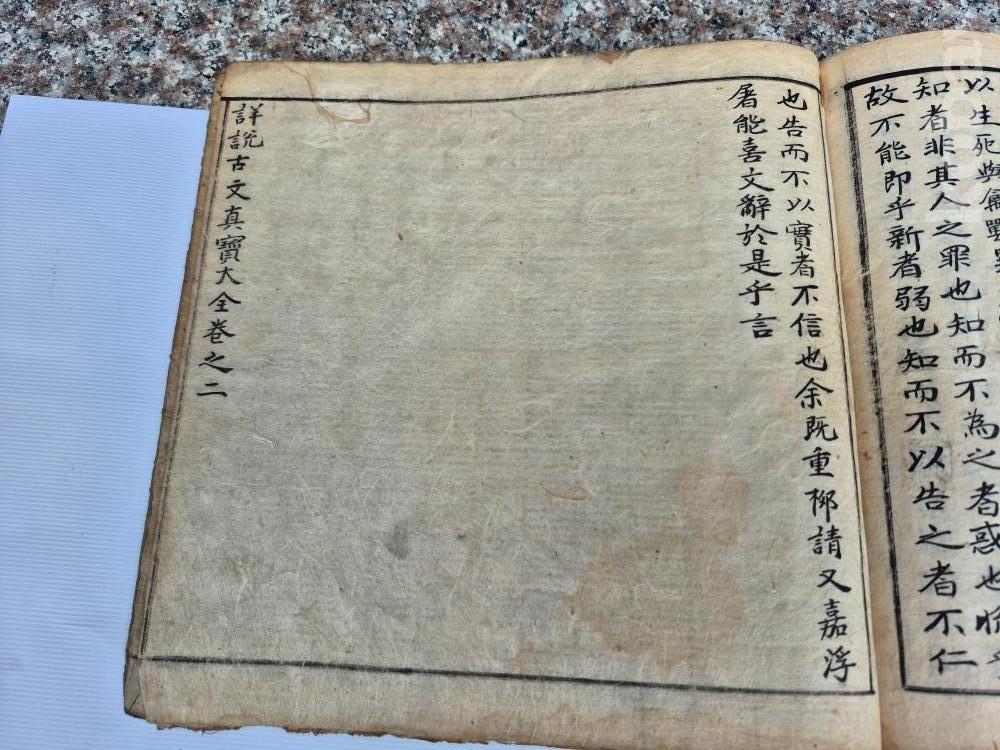 以生死與禽獸
知者非其人之罪也知而不為之者惑也悅乎
故不能即乎新者弱也知而不以告之者不仁
也告而不以實者不信也余既重柳請又嘉浮
屠能喜文辭於是乎言
詳說古文真寶大全卷之二